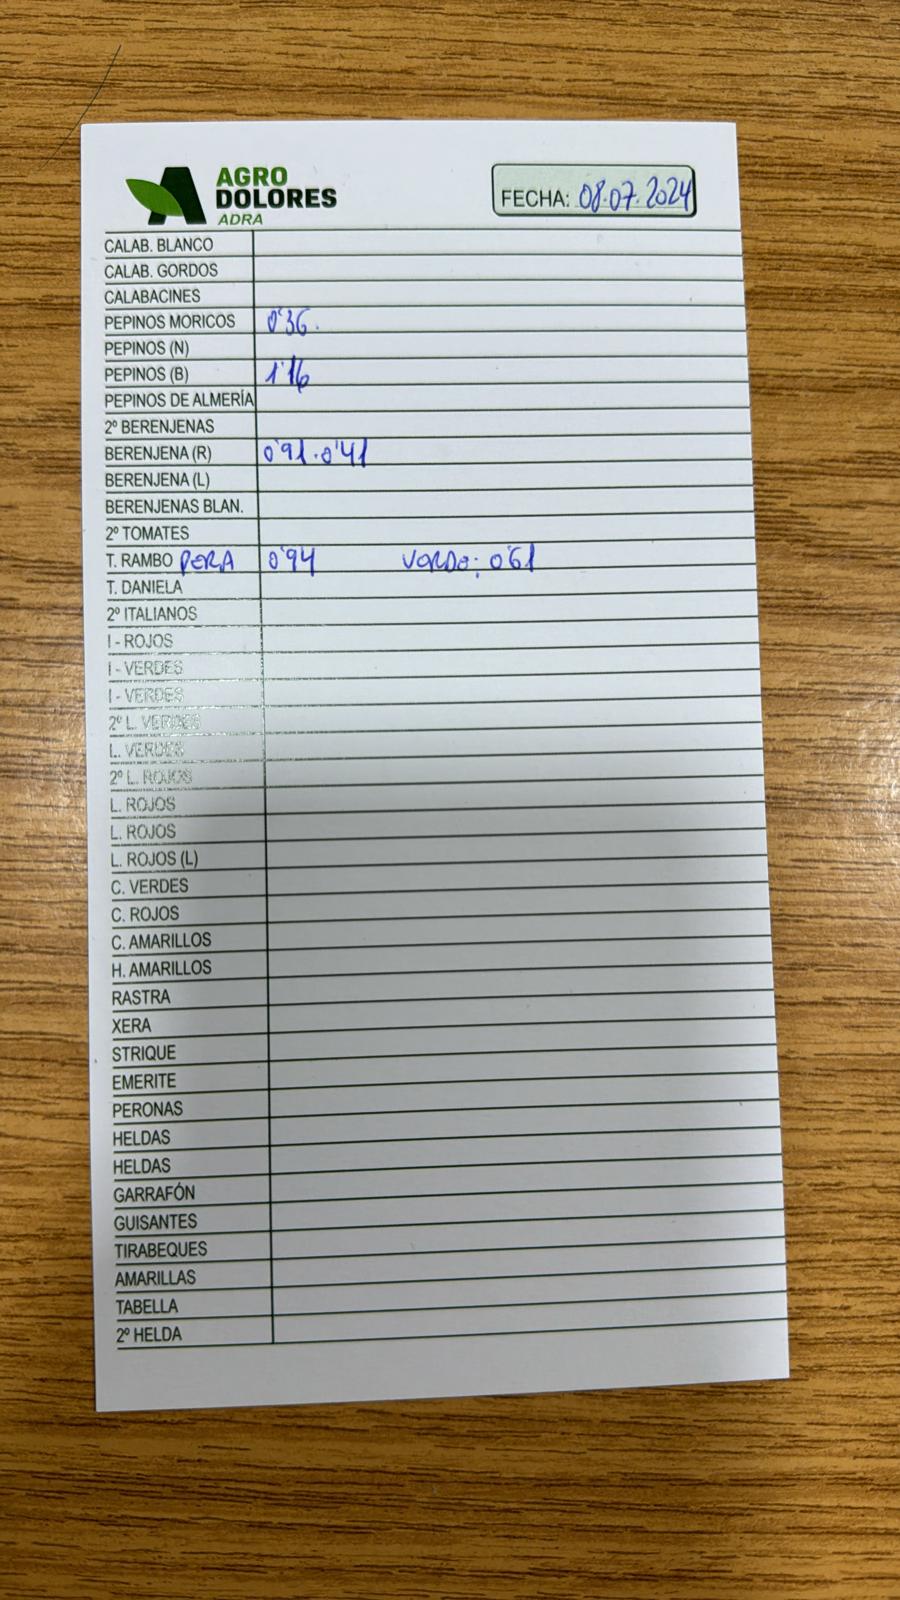 AGRO
DOLORES
ADRA
FECHA: 08.07.2024
CALAB. BLANCO
CALAB. GORDOS
CALABACINES
PEPINOS MORICOS 0'36.
PEPINOS (N)
PEPINOS (B) 1'16
PEPINOS DE ALMERÍA
2º BERENJENAS
BERENJENA (R) 0'91.0'41
BERENJENA (L)
BERENJENAS BLAN.
2º TOMATES
T. RAMBO PERA 0'94 VERDE: 0'61
T. DANIELA
2º ITALIANOS
I - ROJOS
I - VERDES
I - VERDES
2º L. VERDES
L. VERDES
2º L. ROJOS
L. ROJOS
L. ROJOS
L. ROJOS (L)
C. VERDES
C. ROJOS
C. AMARILLOS
H. AMARILLOS
RASTRA
XERA
STRIQUE
EMERITE
PERONAS
HELDAS
HELDAS
GARRAFÓN
GUISANTES
TIRABEQUES
AMARILLAS
TABELLA
2º HELDA